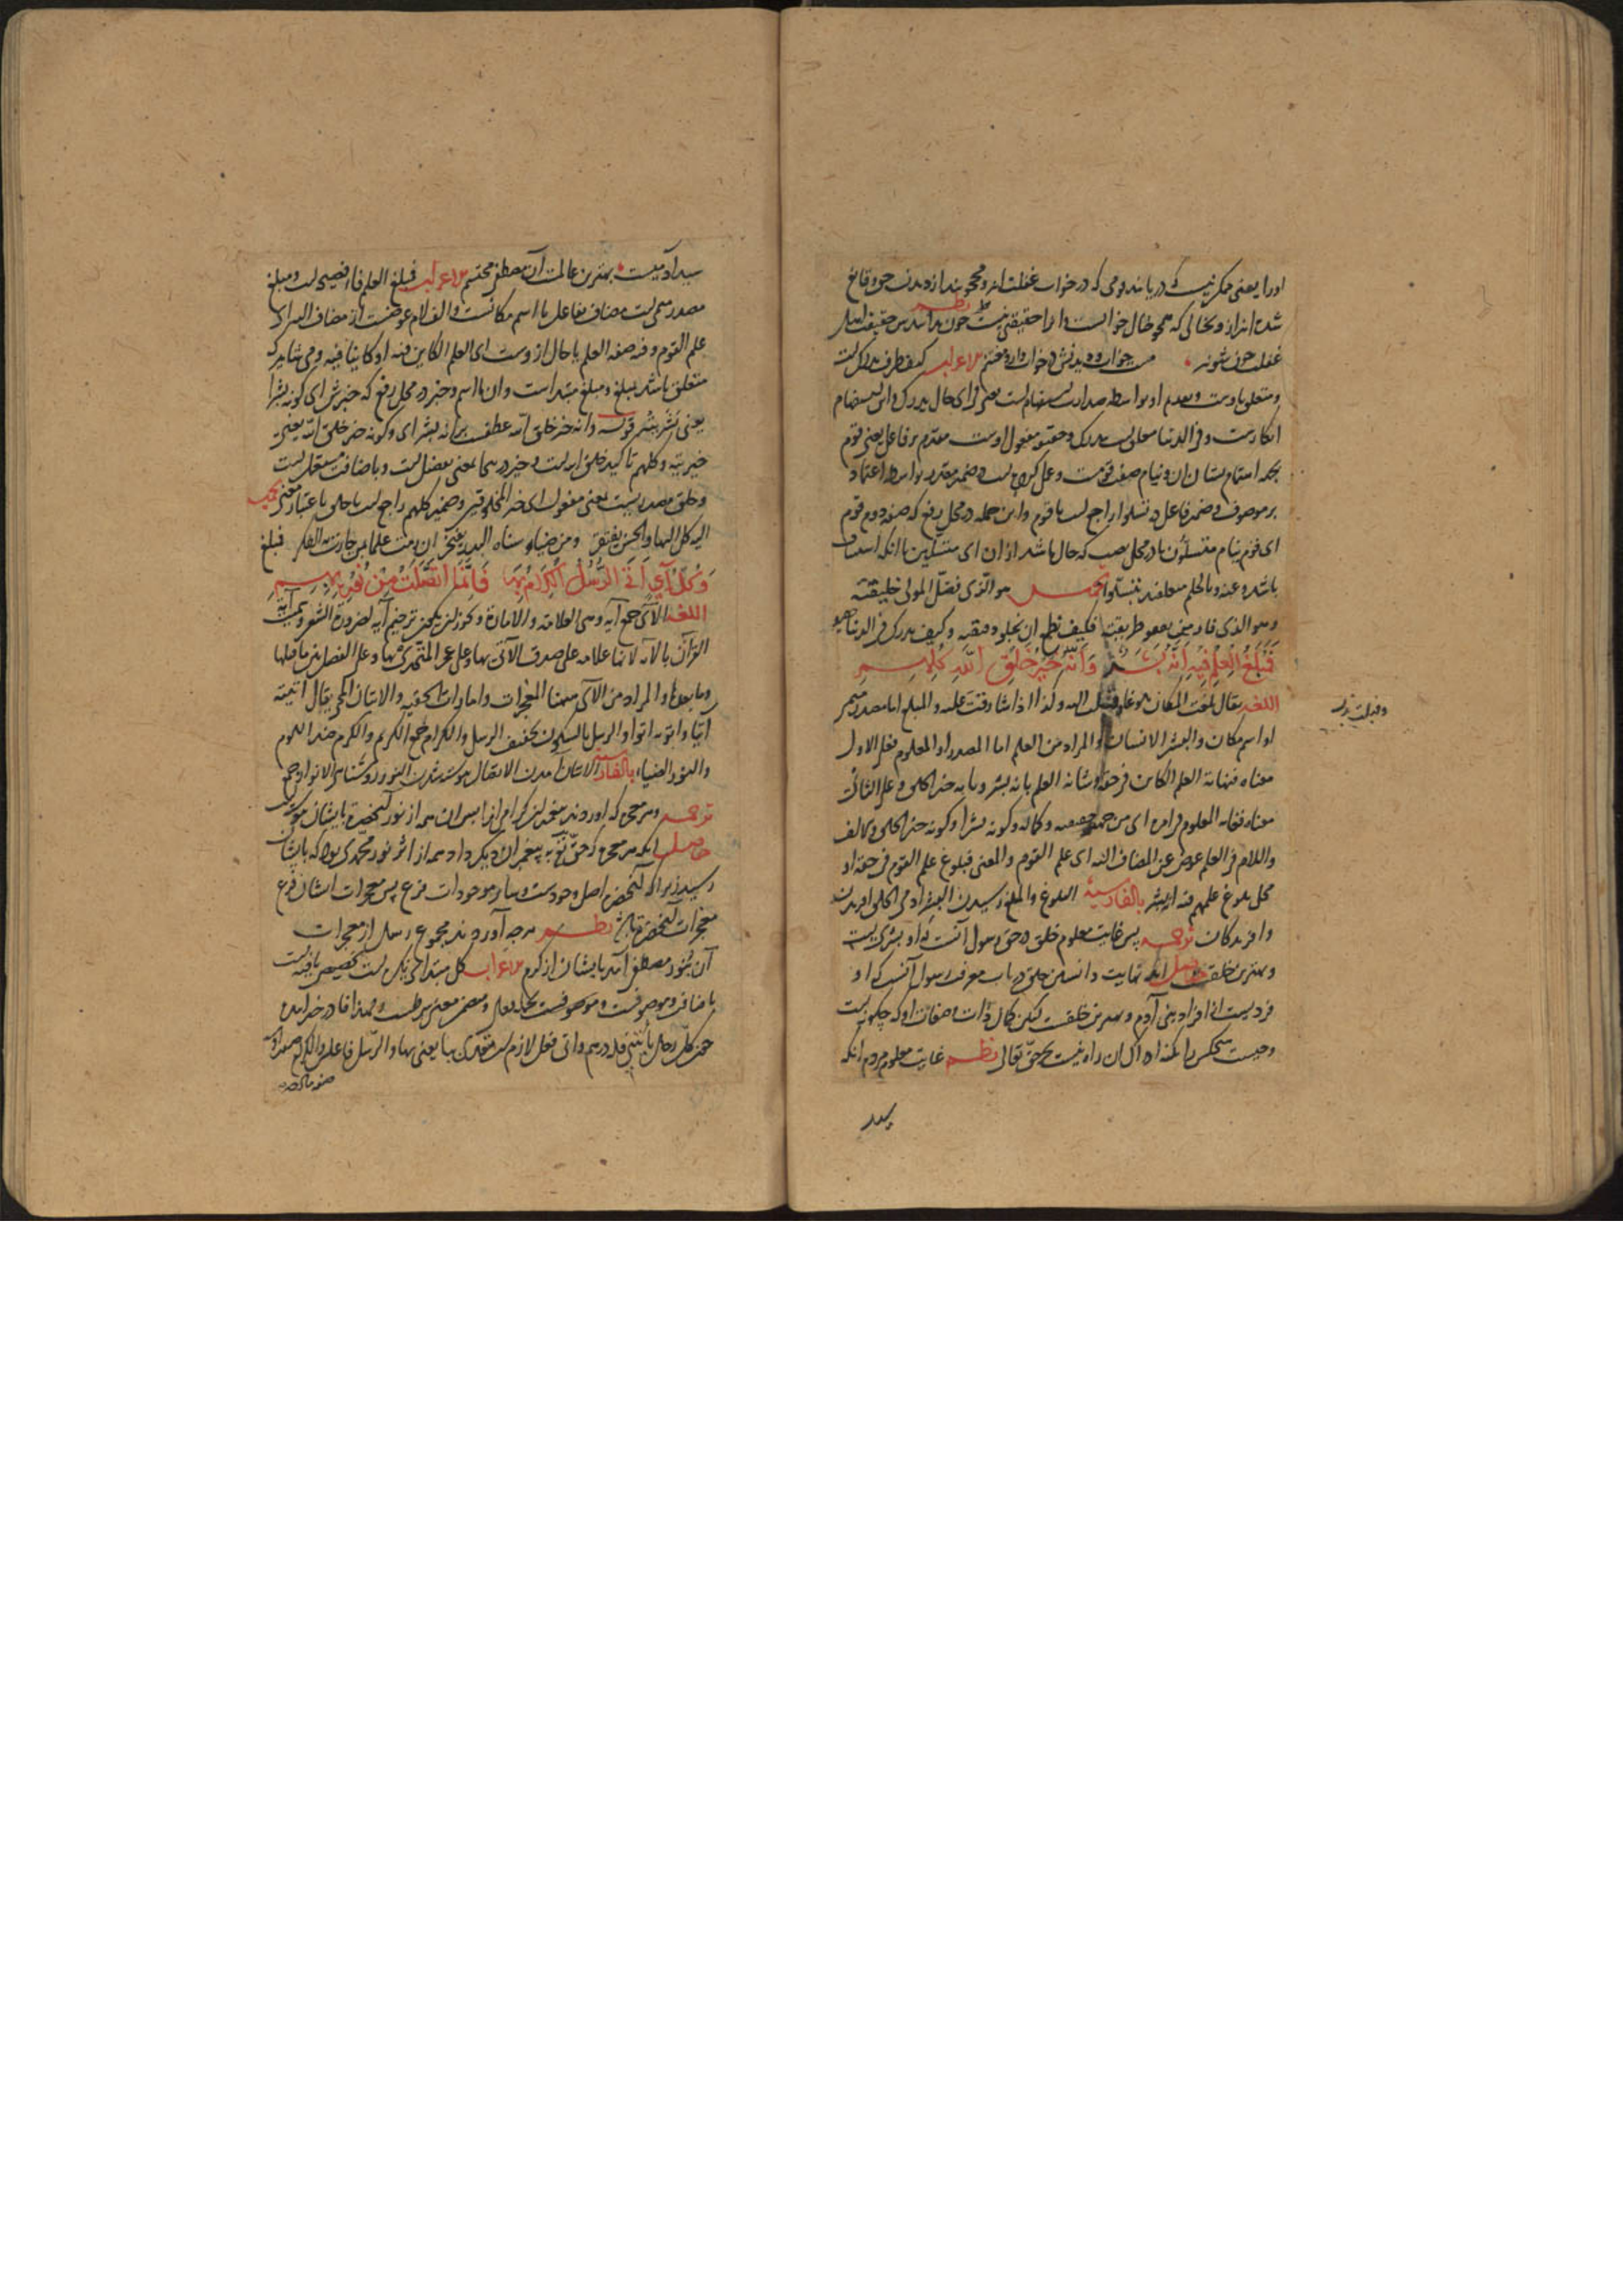 اورا یعنی ممکن نیست که دریابند قومی که در خواب غفلت اند و محجوبند از دیدن حق و قانع
شده اند ازو بخیالی که همچو خیال خوابست و اورا حقیقتی نیست نظم چون بداند سر حقیقت
غفلت چون شوند خواب و دیدنش در خواب دارد مختتم الاعراب کیف ظرف یدرک است
و متعلق باوست و تقدم او بواسطه صدارت استفهام است یعنی فی ای حال یدرک و این استفهام
انکاریست و فی الدنیا متعلق است بیدرک و حقیقته مفعول اوست مقدم بر فاعل یعنی قوم
بجهة اهتمام بشان آن و نیام صفت قومست و عمل کرده است در ضمیر مقدر بواسطه اعتماد
بر موصوف و ضمیر فاعل در تسلوا راجع است با قوم و این جمله در محل رفع که صفة دوم قوم
ای قوم نیام متسلّون یا در محل نصب که حال باشد از ان ای متسلین یا آنکه استیناف
باشد و عنه و بالحلم متعلقند بتسلوا تخمیس هو الّذی فضّل المولی خلیقته
وهو الذی فاز من یقفو طریقته فکیف نطمع ان نجلو دقیقه وکیف یدرک فی الدنیا حقیقته
فَمَبْلَغُ الْعِلْمِ فِيهِ أَنَّهُ بَشَرٌ وَأَنَّهُ خَيْرُ خَلْقِ اللَّهِ كُلِّهِمِ
اللغة یقال بلغت المکان بلوغا وصلت الیه وکذا اذا شارفت علیه والمبلغ اما مصدر میمی
او اسم مکان والبشر الانسان والمراد من العلم اما المصدر او المعلوم فعلی الاول
معناه فنهایة العلم الکاین فی حقه وشانه العلم بانه بشر وبانه خیر الخلق وعلی الثانی
معناه فغایة المعلوم فی امره ای من جهة حقیقته وکماله وکونه بشرا وکونه خیر الخلق والالف
واللام فی العلم عوض عن المضاف الیه ای علم القوم والمعنی فبلوغ علم القوم فی حقه او
محل بلوغ علمهم فیه انه بشر بالفارسیة البلوغ والمبلغ رسیدن البشر آدمی الخلق آفریدن
و آفریدگان ترجمه پس غایت معلوم خلق در حق رسول آنست که او بشریست
و بهترین خلقست حاصل آنکه نهایت دانستن خلق در باب معرفت رسول آنست که او
فردیست از افراد بنی آدم و بهترین خلقست لیکن کمال ذات و صفات او که چگونه است
و چیست هیچکس را بکنه ادراک آن راه نیست بجز حقّ تعالی نظم غایت معلوم مردم آنکه
سید
وقیل نزل
سید آدمیست بهترین عالمست آن مصطفی محتشم الاعراب فمبلغ العلم فا فصیحه است و مبلغ
مصدر میمی است مضاف بفاعل یا اسم مکانست و الف لام عوضست از مضاف الیه ای
علم القوم و فیه صفة العلم یا حال ازوست ای العلم الکاین فیه او کاینا فیه و می شاید که
متعلق باشد بمبلغ و مبلغ مبتداست و ان با اسم و خبر در محل رفع که خبرش ای کونه بشرا
یعنی بشر بشر قوله وانه خیر خلق الله عطف برانه بشر ای وکونه خیر خلق الله یعنی
خیریته و کلهم تاکید خلق الله است و خیر در اینجا بمعنی افضل است و باضافت مستعمل است
و خلق مصدریست بمعنی مفعول ای خیر المخلوقین و ضمیر کلهم راجع است با خلق باعتبار معنی تخمیس
الیه کل البها والحسن یفتقر ومن ضیاء سناه البدر یفتخر ان رمت علما بمن حارت به الفکر فمبلغ
وَكُلُّ آيٍ أَتَى الرُّسْلُ الْكِرَامُ بِهَا فَإِنَّمَا اتَّصَلَتْ مِنْ نُورِهِ بِهِمِ
اللغة الآی جمع آیه وهی العلامة والامارة ویجوز ان یکون ترخیم آیه لضرورة الشعر وسمیت آیة
القرآن بالآیة لانها علامة علی صدق الآتی بها وعلی عجز المتحدی بها وعلی الفصل بین ما قبلها
وما بعدها والمراد من الآی ههنا المعجزات وامارات الحقیة والاتیان المجئ یقال اتیته
اتیا واتوته اتوا والرسل بالسکون تخفیف الرسل والکرام جمع الکریم والکرم ضد اللوم
والنور الضیاء بالفارسیة الاتیان آمدن الاتصال پیوسته شدن النور روشنائی الانوار جمع
ترجمه و هر معجزه که آوردند پیغمبران کرام از ایشان همه از نور آنحضرت بایشان پیوست
حاصل آنکه هر معجزه که حقّ تع به پیغمبران دیگر داد همه از اثر نور محمدی بود که بایشان
رسید زیرا که آنحضرت اصل وجودست و سایر موجودات فرع پس معجزات ایشان فرع
معجزات آنحضرت باشد نظم هر چه آوردند مجموع رسل از معجزات
آن ز نور مصطفی آمد بایشان از کرم الاعراب کل مبتدا نکره است تخصیص یافته است
باضافت و موصوفست و موصوفست بجمله فعلی و متضمن معنی شرطست و لهذا فا در خبر آمده
نحو کل رجل یأتینی فله درهم و اتی فعل لازم است متعدی ببا یعنی بها و الرسل فاعل و الکرام صفت او
صفة